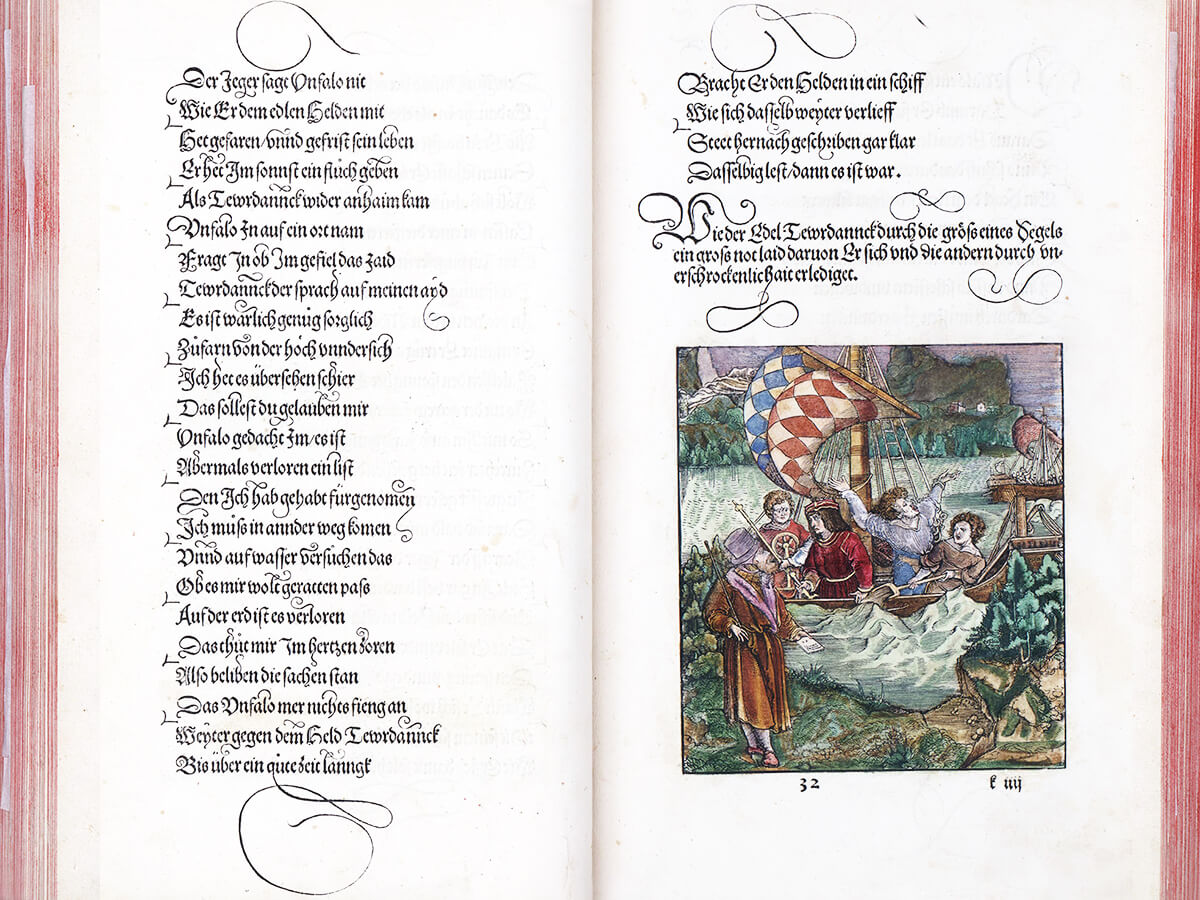 Der Jeger sagt Vnfalo nit
Wie Er dem edlen Helden mit
Het gefaren/vnnd gefrist sein leben
Er het Im sonnst ein stůch geben
Als Tewrdannck wider anhaim kam
Vnfalo In auf ein ort nam
Fragt In ob Im gefiel das Jaid
Tewrdannck der sprach auf meinen ayd
Es ist warlich genůg sorglich
Zůfarn von der hoch vundersich
Ich het es übersehen schier
Das sollest du gelauben mir
Vnfalo gedacht Im/es ist
Abermals verloren ein list
Den Ich hab gehabt fürgenomen
Ich můß in annder weg komen
Vnnd auf wasser versuchen das
Ob es mir wolt geratten pass
Auf der erd ist es verloren
Das thůt mir Im hertzen zoren
Also beliben die sachen stan
Das Vnfalo mer nichts fieng an
Weyter gegen dem Held Tewrdannck
Bis über ein gute zeit lanngk
Bracht Er den Helden in ein schiff
Wie sich dasselb weyter verlieff
Steet hernach geschriben gar klar
Dasselbig lest/dann es ist war.
Wie der Edel Tewrdannck durch die größ eines Segels
ein groß not laid daruon Er sich vnd die andern durch vn-
erschrockenlichait erlediget.
32 k iiij